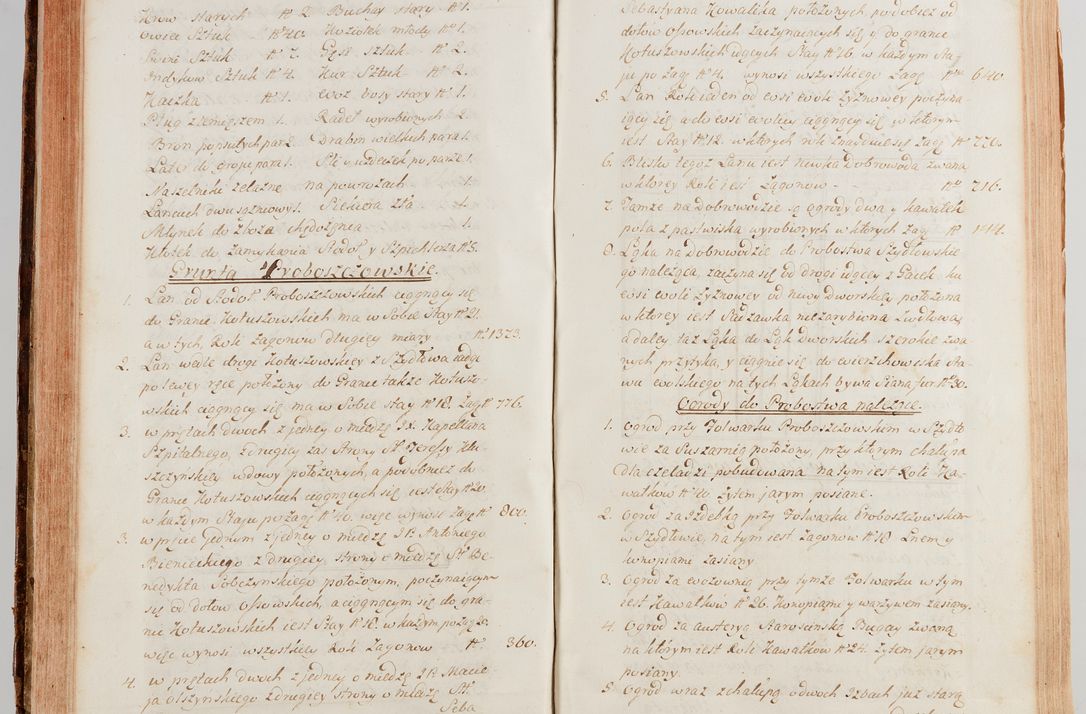 Krów starych Nr 2. Buchay stary Nr 1.
Owiec Sztuk Nr 40. Koziołek młody Nr 1.
Swini Sztuk Nr 7. Gęsi sztuk Nr 2.
Indyków Sztuk Nr 4. Kur Sztuk Nr 2.
Kaczka Nr 1. Woz bosy stary Nr 1.
Pług z lemięszem 1. Radeł wyrobionych 2.
Bron popsutych par 2. Drabin wielkich para 1.
Naszelniki żelazne na powrozach 1.
Łancuch dwusążniowy 1. Siekiera zła 1.
Młynek do zboża chędożęnia 1.
Kłotek do zamykania Stodoł y Szpichlerza Nr 3.
Grunta Proboszczowskie.
1. Łan od Stodoł Proboszczowskich ciągnący się
do Granic Kotuszowskich ma w Sobie Stay Nr 21.
a w tych Roli zagonow długiey miary Nr 1373.
2. Łan wedle drogi Kotuszowskiey z Szydłowa iadąc
po lewey ręce położony do Granic także Kotuszo-
wskich ciągnący się ma w Sobie Stay Nr 18. Zag Nr 776.
3. w prętach dwoch z iedney o miedzę JX. Kapellana
Szpitalnego, z drugiey zaś Strony St. Teresy Klu-
szczynskiey wdowy położonych, a podobnież do
Granic Kotuszowskich ciągnących się iest Stay Nr 20
w każdym Staju po Zag Nr 40. więc wynosi Zag Nr 800.
3. w pręcie Jednym z iedney o miedzę JP. Antoniego
Bienieckiego z drugiey strony o miedzę St. Be-
nedykta Sobczynskiego położonym, poczynaiącym
się od dołow Osowskich, a ciągnącym się do gra-
nic Kotuszowskich iest Stay Nr 18. w każdym po Zag 20.
więc wynosi wszystkiey Roli Zagonow Nr 360.
4. w prętach dwoch z iedney o miedzę JP. Macie-
ja Olszynskiego z drugiey strony o miedzę St.
Seba
Sebastyana Kowalika położonych podobież od
dołow Osowskich zaczynaiących się y do granic
Kotuszowskich idących Stay Nr 16. w każdym Sta-
ju po Zag Nr 4. wynosi wszystkiego Zag Nr 640.
5. Łan Roli ieden od wsi Woli Zyznowey poczyna-
iący się a do wsi Wolicy ciągnący się w ktorym
iest Stay Nr 12. w ktorych roli znayduie się Zag Nr 770.
6. Blisko tegoż Łanu iest Niwka Dobrowoda zwana
w ktorey Roli iest Zagonow - Nr 716.
7. Tamże na Dobrowodzie są ogrody dwa y kawałek
pola z pastwiska wyrobionych w ktorych Zag Nr 1414.
8. Łąka na Dobrowodzie do Probostwa Szydłowskie-
go należąca, zaczyna się ku drogi idący z Gacek ku
wsi Woli Zyznowey od niwy Dworskiey położona
w ktorey iest Sadzawka niezarybiona Zwdłowa,
a daley taż Łąka do Łąk Dworskich szerokie zwa-
nych przytyka, y ciągnie się do wierzchowiska Sta-
wu Wolskiego na tych Łąkach bywa Siana fur Nr 30.
Ogrody do Probostwa należące.
1. Ogrod przy Folwarku Proboszczowskiem w Szydło-
wie za Suszarnią położony, przy ktorym chałupa
dla czeladzi pobudowana na tym iest Roli Ka-
wałkow Nr 40. żytem jarym posiane.
2. Ogrod za Izdebką przy Folwarku Proboszczowskim
w Szydłowie, na tym iest zagonow Nr 18. Lnem y
konopiami zasiany
3. Ogrod za Wozownią przy tymże Folwarku w tym
iest Kawałkow Nr 26. Konopiami y warzywem zasiany.
4. Ogrod za austeryą Starościnską Bugay zwaną
na ktorym iest Roli Kawałkow Nr 24. żytem jarym
posiany.
5. Ogrod wraz z chałupą o dwoch Izbach już starą